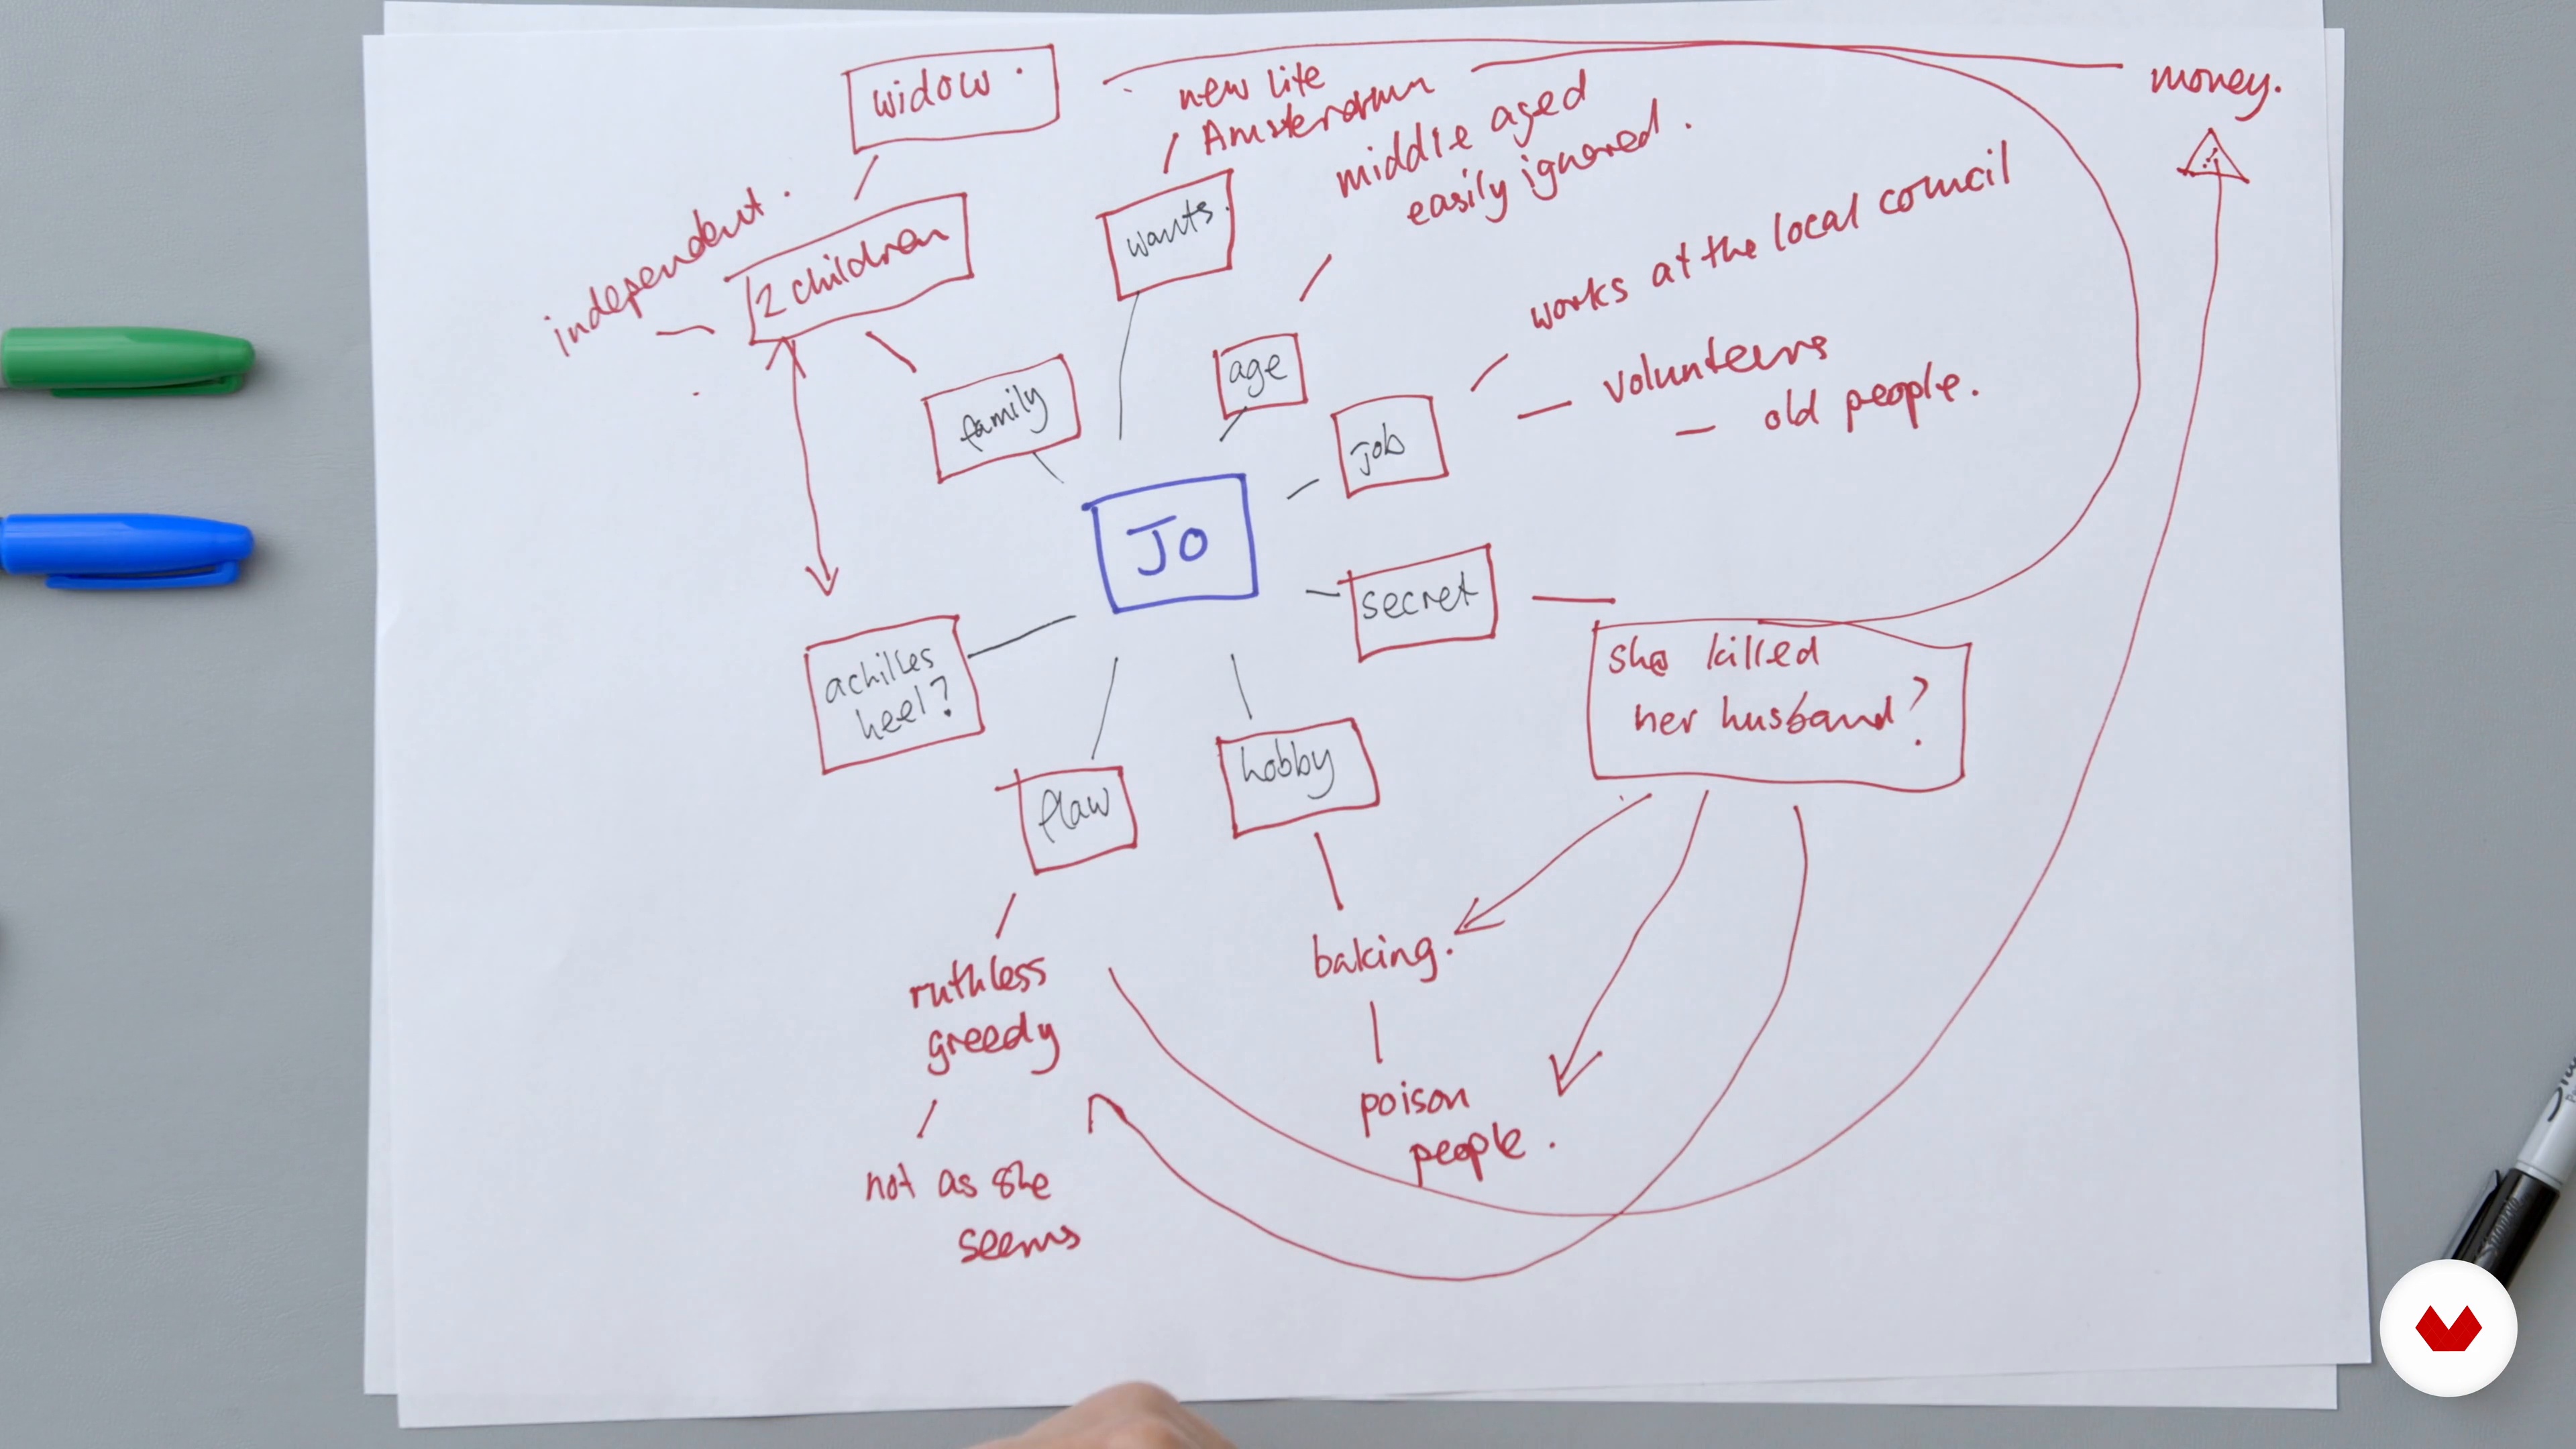 widow.
new life
Amsterdam
money.
middle aged
easily ignored.
independent.
2 children
wants.
works at the local council
volunteers
- old people.
age
family
job
JO
secret
she killed
her husband?
achilles
heel?
flaw
hobby
ruthless
greedy
baking.
poison
people.
not as she
seems